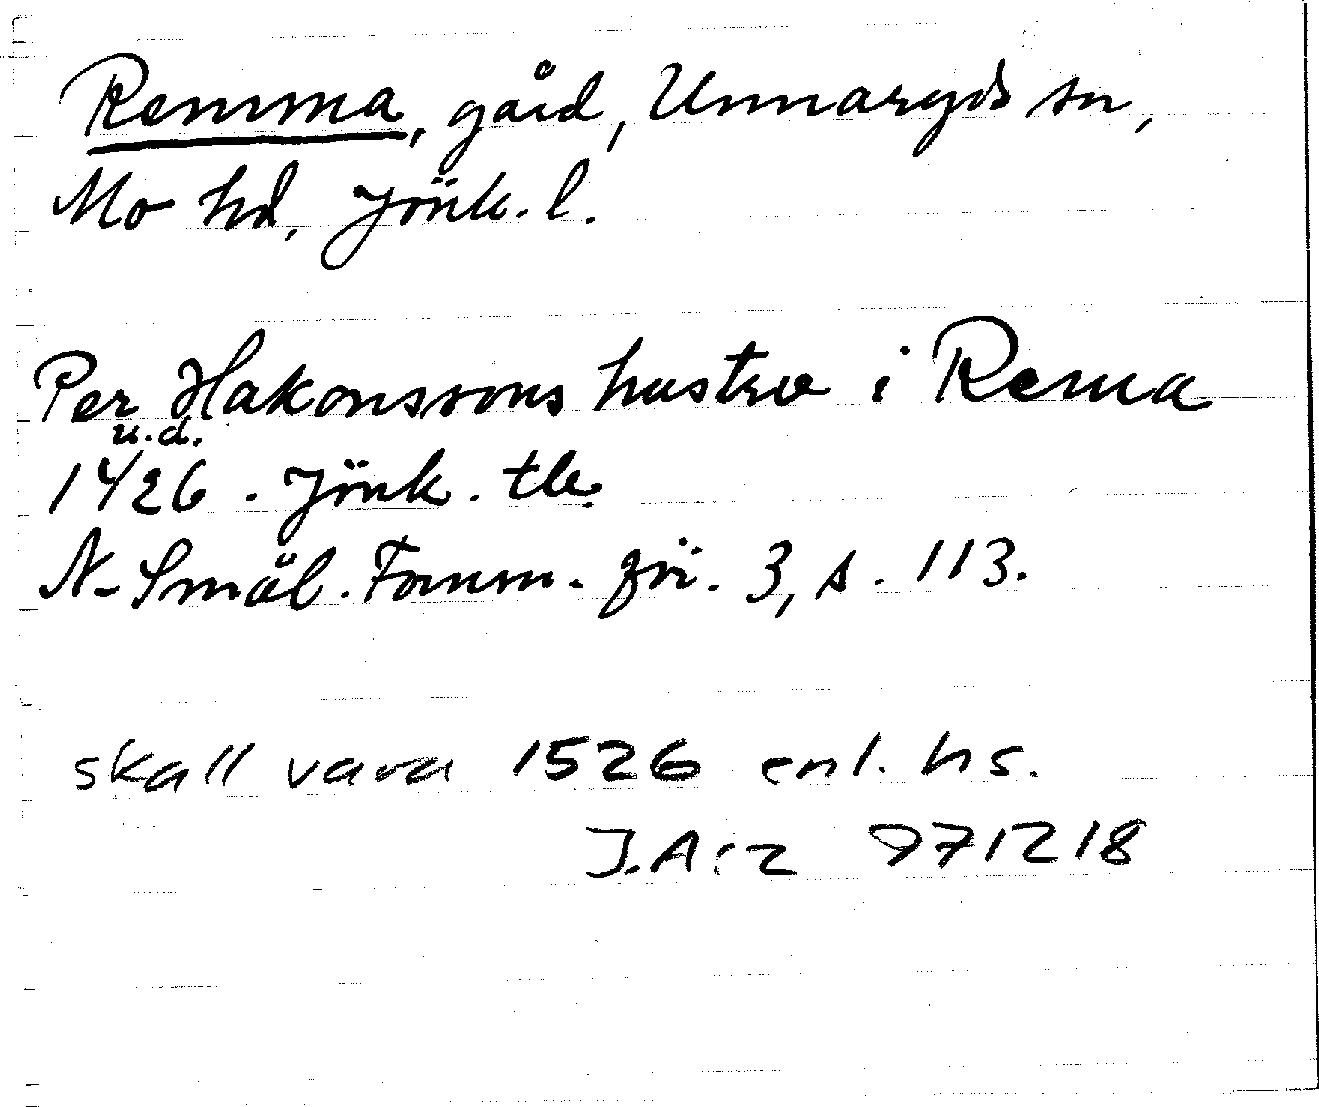 Remma, gård, Unnaryds sn,
Mo hd, Jönk. l.
Per Hakonssons hustru i Rema
u.d.
1426. Jönk. tle.
N. Smål. Fornm. för. 3, s. 113.
skall vara 1526 enl. hs.
J.A:z 971218